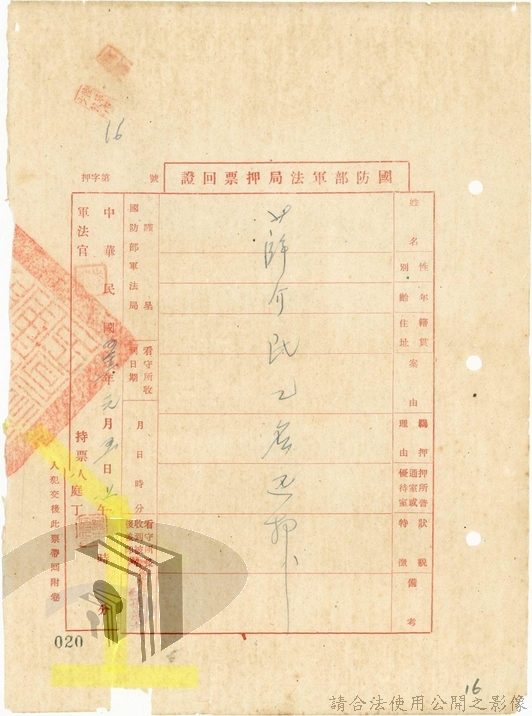 16
國防部軍法局押票回證
押字第 號
姓名
性別
年齡
籍貫
住址
案由
羈押理由
押所普通室或優待室
特徵狀貌
備考
薛介民乙名還押
國防部軍法局
看守所收到日期
月 日 時 分
中華民國 年元月 日 午 時 分
軍法官
持票人庭丁
人犯交後此票帶回附卷
020
16
請合法使用公開之影像